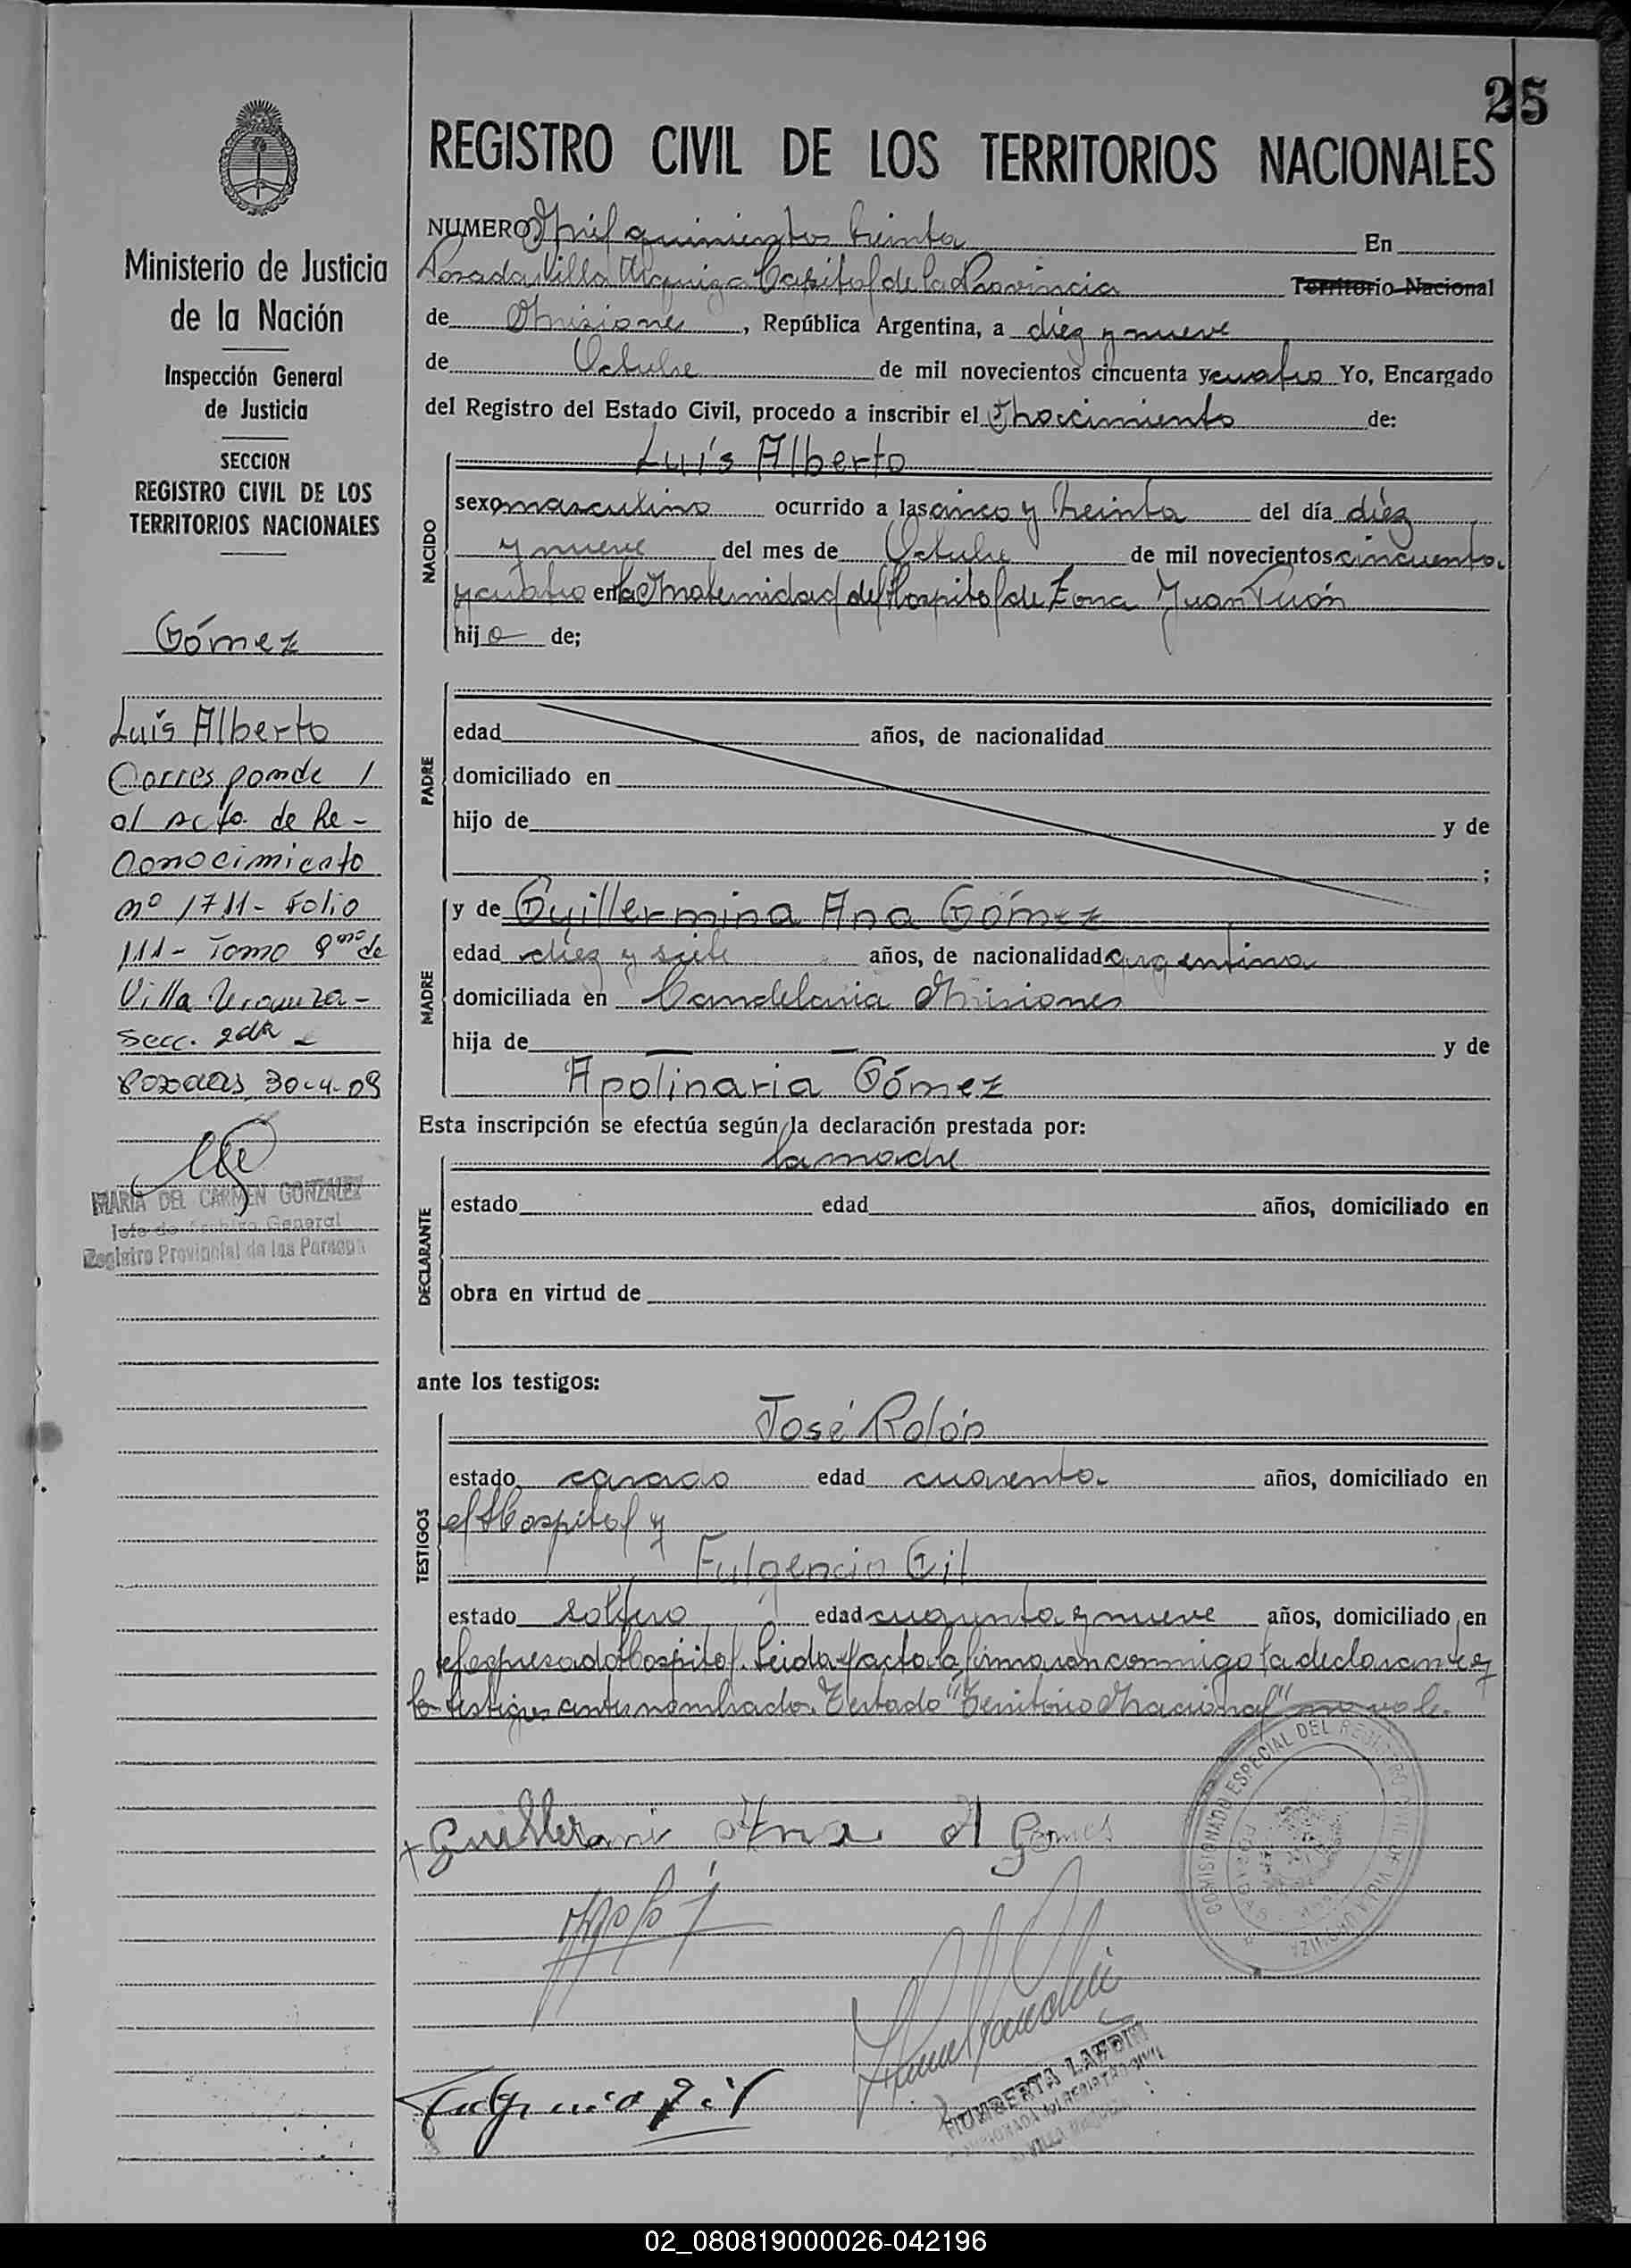 25
REGISTRO CIVIL DE LOS TERRITORIOS NACIONALES
Ministerio de Justicia
de la Nación
Inspección General
de Justicia
SECCION
REGISTRO CIVIL DE LOS
TERRITORIOS NACIONALES
Gómez
Luis Alberto
Corresponde /
al acta de Re-
conocimiento
nº 1711- Folio
111- Tomo 8vo de
Villa Urquiza-
Secc. 2da
Posadas, 30-4-09
MARIA DEL CARMEN GONZALEZ
Jefe de Archivo General
Registro Provincial de las Personas
NUMERO mil quinientos treinta En
Posadas Villa Urquiza Capital de la Provincia Territorio Nacional
de Misiones, República Argentina, a diez y nueve
de Octubre de mil novecientos cincuenta y cuatro Yo, Encargado
del Registro del Estado Civil, procedo a inscribir el Nacimiento de:
NACIDO
Luis Alberto
sexo masculino ocurrido a las cinco y treinta del día diez
y nueve del mes de Octubre de mil novecientos cincuenta
y cuatro en la Maternidad del Hospital de Zona Juan Perón
hijo de;
PADRE
edad años, de nacionalidad
domiciliado en
hijo de y de
;
MADRE
y de Guillermina Ana Gómez
edad diez y siete años, de nacionalidad argentina
domiciliada en Candelaria Misiones
hija de — — y de
Apolinaria Gómez
Esta inscripción se efectúa según la declaración prestada por:
DECLARANTE
la madre
estado edad años, domiciliado en
obra en virtud de
ante los testigos:
TESTIGOS
José Rolón
estado casado edad cuarenta años, domiciliado en
el Hospital y
Fulgencio Gil
estado soltero edad cuarenta y nueve años, domiciliado en
el expresado Hospital. Leida el acta la firmaron conmigo la declarante y
los testigos antes nombrados. Testado "Territorio Nacional" no vale.
COMISIONADO ESPECIAL DEL REGISTRO CIVIL DE VILLA URQUIZA
Ana Gomes
Fulgencio Gil
HUMBERTA
02_080819000026-042196